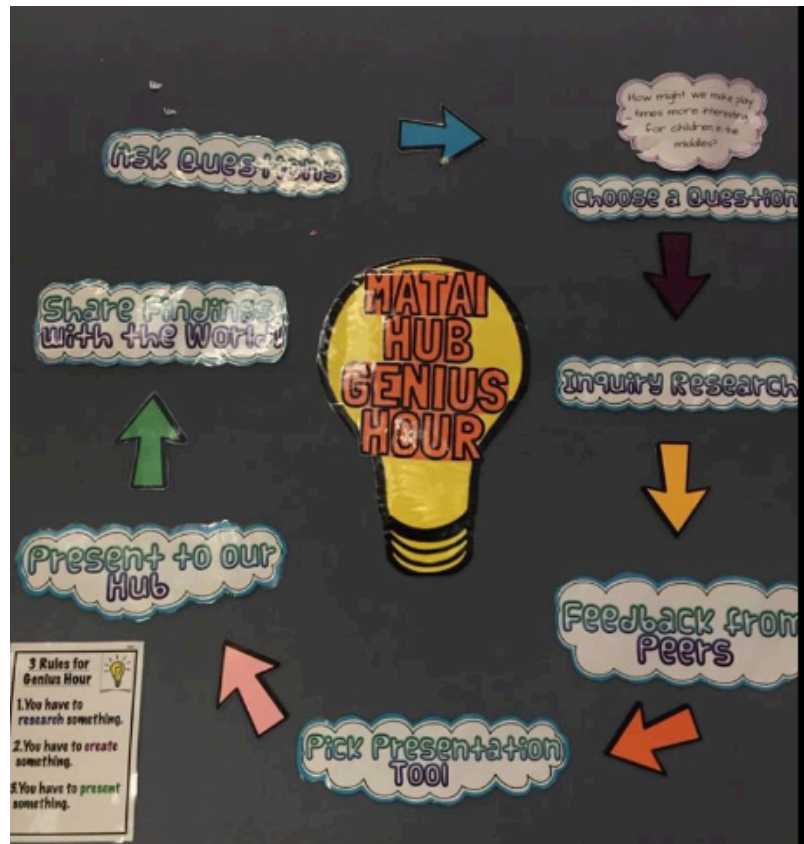 Ask Questions
How might we make play
times more interesting
for children in the
middles?
Choose a Question
Inquiry Research
Feedback from
Peers
Pick Presentation
Tool
Present to our
Hub
Share Findings
with the World!
MATAI
HUB
GENIUS
HOUR
3 Rules for
Genius Hour
1.You have to
research something.
2.You have to create
something.
3.You have to present
something.